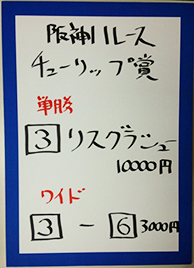 阪神11レース
チューリップ賞
単勝
3 リスグラシュー
10000円
ワイド
3 - 6 3000円